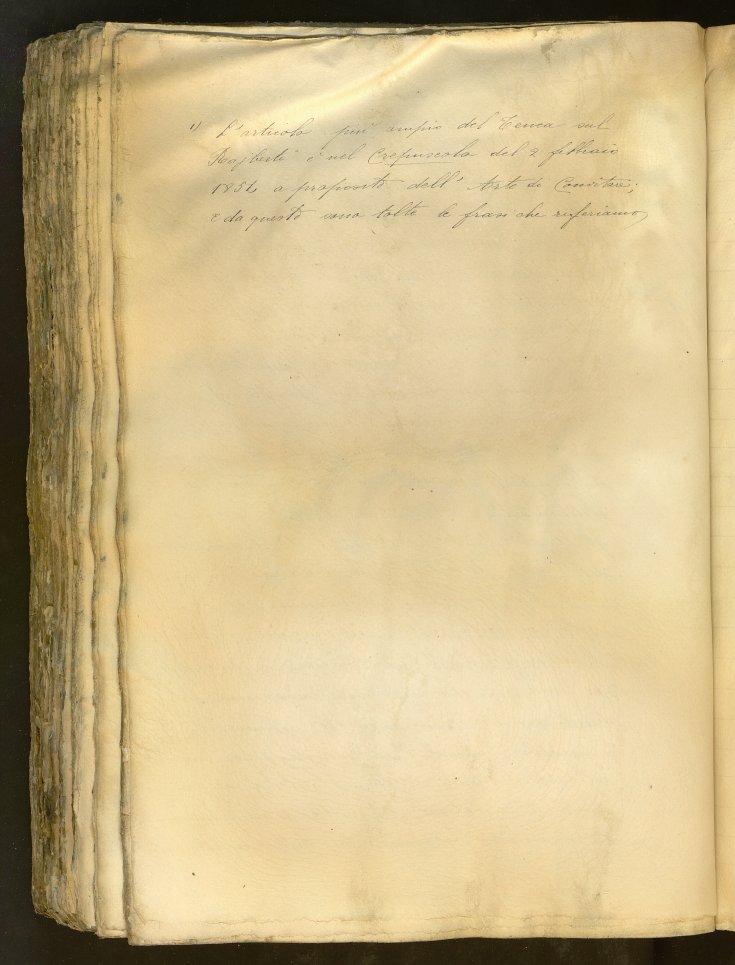 1) L'articolo più ampio del Tenca sul
Rajberti è nel Crepuscolo del 2 febbraio
1851 a proposito dell'Arte di Convitare;
e da questo sono tolte le frasi che riferiamo